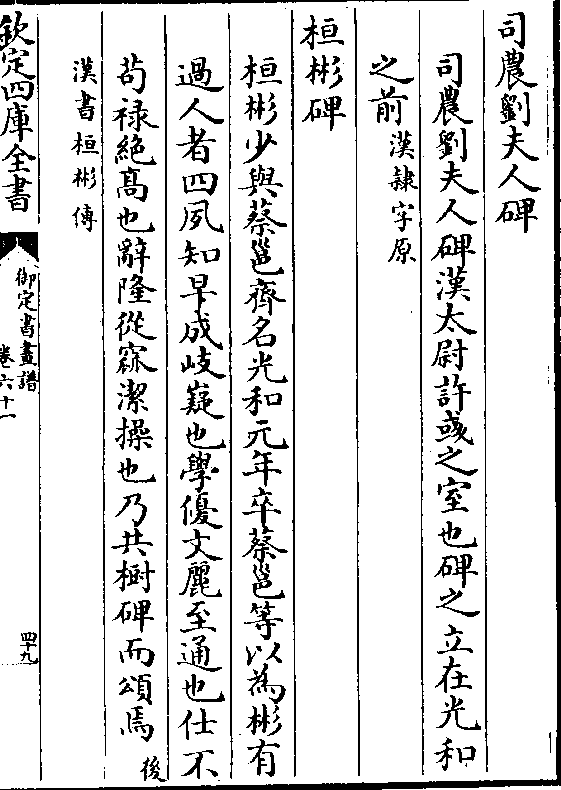 司農劉夫人碑
司農劉夫人碑漢太尉許彧之室也碑之立在光和
之前漢隸字原
桓彬碑
桓彬少與蔡邕齊名光和元年卒蔡邕等以為彬有
過人者四夙知早成岐嶷也學優文麗至通也仕不
茍祿絶髙也辭隆從窊潔操也乃共樹碑而頌焉後
漢書桓彬傳
欽定四庫全書
御定書畫譜
卷六十一
四十九